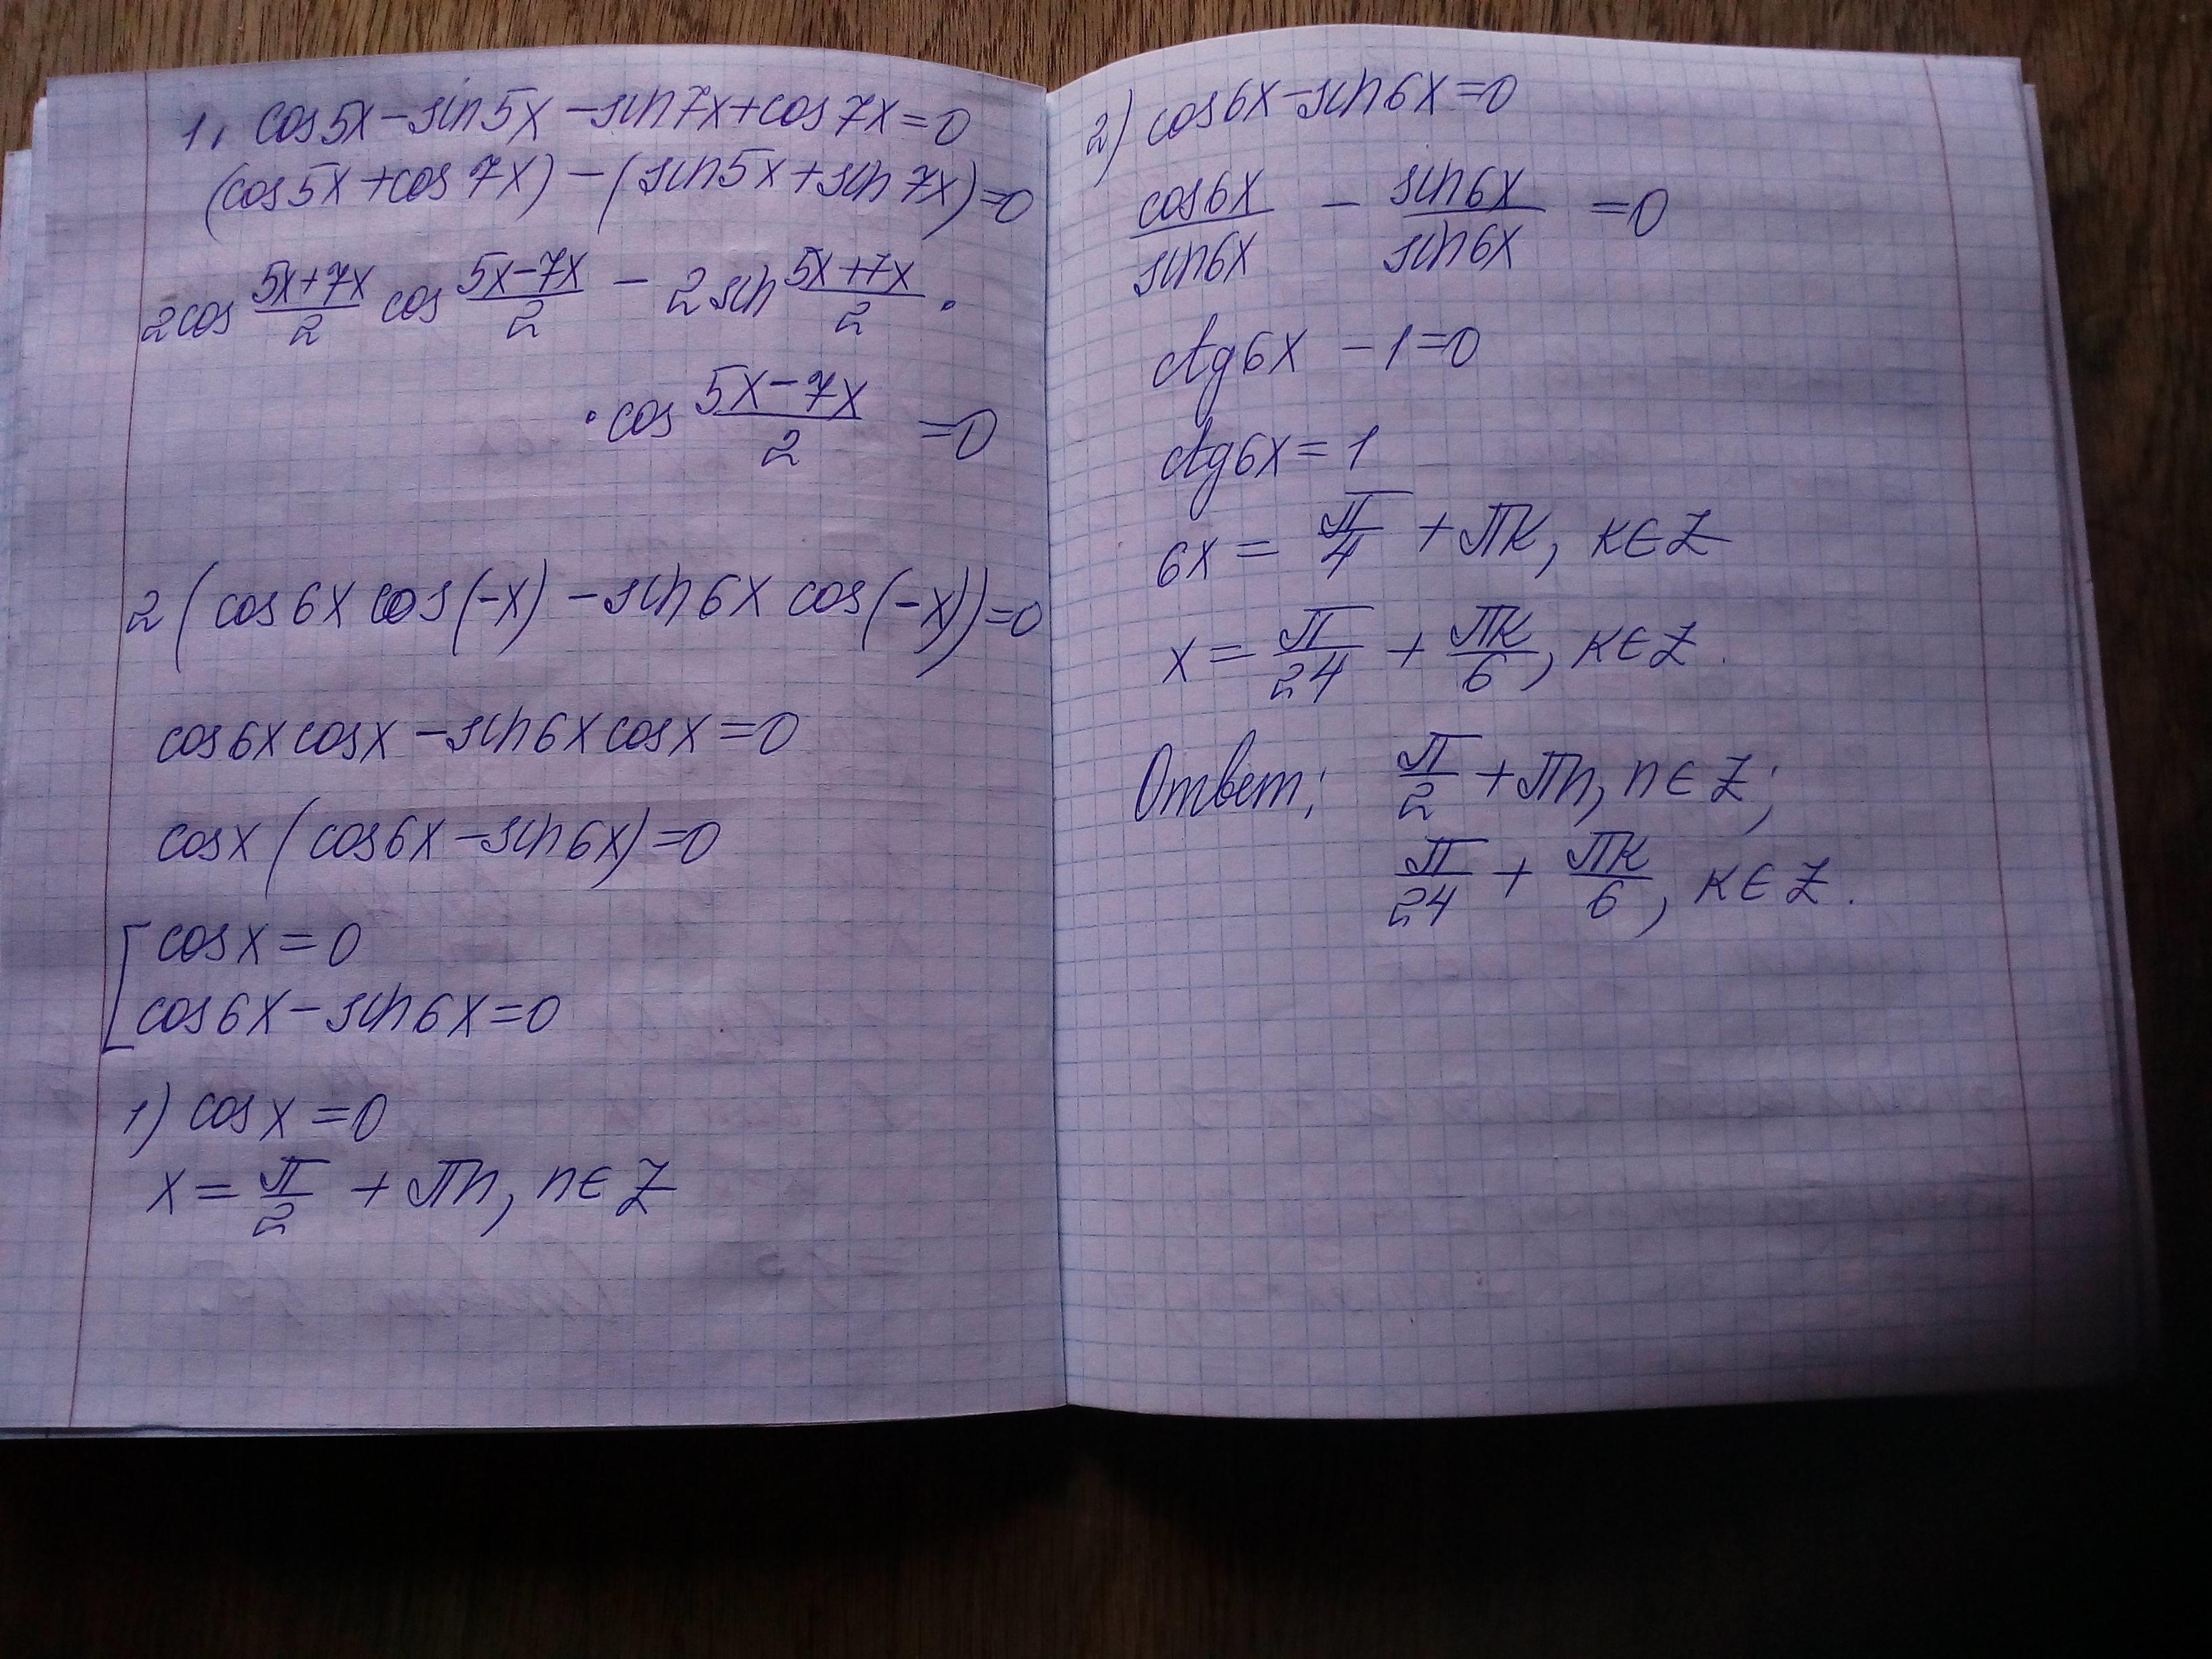 1. cos5x-sin5x-sin7x+cos7x=0
(cos5x+cos7x)-(sin5x+sin7x)=0
2cos (5x+7x)/2 cos (5x-7x)/2 - 2sin (5x+7x)/2 ·
· cos (5x-7x)/2 =0
2(cos6x cos(-x)-sin6x cos(-x))=0
cos6x cosx-sin6x cosx=0
cosx(cos6x-sin6x)=0
[cosx=0
cos6x-sin6x=0
1) cosx=0
x= π/2 + πn, n∈Z
2) cos6x-sin6x=0
cos6x/sin6x - sin6x/sin6x =0
ctg6x -1=0
ctg6x=1
6x= π/4 + πk, k∈Z
x= π/24 + πk/6, k∈Z.
Ответ: π/2 + πn, n∈Z;
π/24 + πk/6, k∈Z.